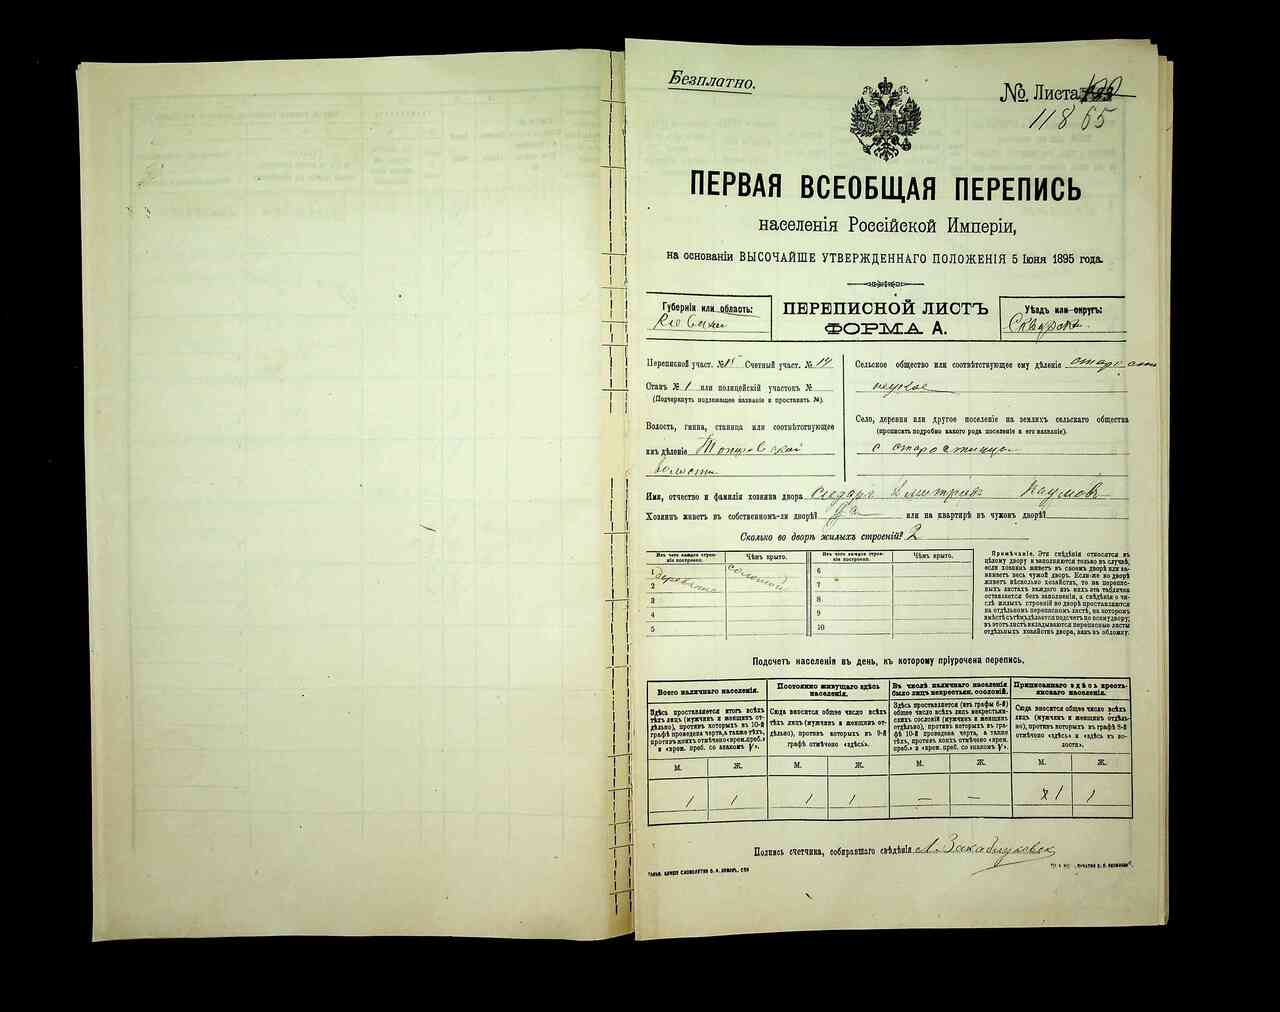 Безплатно.
№. Листа
118 65
ПЕРВАЯ ВСЕОБЩАЯ ПЕРЕПИСЬ
населенія Россійской Имперіи,
на основаніи ВЫСОЧАЙШЕ УТВЕРЖДЕННАГО ПОЛОЖЕНІЯ 5 Іюня 1895 года.
Губернія или область:
ПЕРЕПИСНОЙ ЛИСТЪ
ФОРМА А.
Уѣздъ или округъ:
Переписной участ. №15 Счетный участ. № 14
Станъ № 1 или полицейскій участокъ №
(Подчеркнуть подлежащее названіе и проставить №).
Волость, гмина, станица или соотвѣтствующее
имъ дѣленіе
волости
Сельское общество или соотвѣтствующее ему дѣленіе
Село, деревня или другое поселеніе на земляхъ сельскаго общества
(прописать подробно какого рода поселеніе и его названіе).
с
Имя, отчество и фамилія хозяина двора Наумовъ
Хозяинъ живетъ въ собственномъ-ли дворѣ? Да или на квартирѣ въ чужомъ дворѣ?
Сколько во дворѣ жилыхъ строеній? 2
Изъ чего каждое строеніе построено.
Чѣмъ крыто.
Изъ чего каждое строеніе построено.
Чѣмъ крыто.
1 соломой 6
2 7
3 8
4 9
5 10
Примѣчаніе. Эти свѣдѣнія относятся къ
цѣлому двору и заполняются только въ случаѣ,
если хозяинъ живетъ въ своемъ дворѣ или занимаетъ весь чужой дворъ. Если-же во дворѣ
живетъ нѣсколько хозяйствъ, то на переписныхъ листахъ каждаго изъ нихъ эта табличка
оставляется безъ заполненія, а свѣдѣнія о числѣ жилыхъ строеній во дворѣ проставляются
на отдѣльномъ переписномъ листѣ, на которомъ
вмѣстѣ съ тѣмъ дѣлается подсчетъ по всему двору;
въ этотъ листъ вкладываются переписные листы
отдѣльныхъ хозяйствъ двора, какъ въ обложку.
Подсчетъ населенія въ день, къ которому пріурочена перепись.
Всего наличнаго населенія.
Постоянно живущаго здѣсь населенія.
Въ числѣ наличнаго населенія было лицъ некрестьян. сословій.
Приписаннаго здѣсь крестьянскаго населенія.
Здѣсь проставляется итогъ всѣхъ
тѣхъ лицъ (мужчинъ и женщинъ отдѣльно), противъ которыхъ въ 10-й
графѣ проведена черта, а также тѣхъ,
противъ коихъ отмѣчено «врем. преб.»
и «врем. преб. со знакомъ V».
Сюда вносится общее число всѣхъ
тѣхъ лицъ (мужчинъ и женщинъ отдѣльно), противъ которыхъ въ 9-й
графѣ отмѣчено «здѣсь».
Здѣсь проставляется (изъ графы 6-й)
общее число лицъ всѣхъ некрестьянскихъ сословій (мужчинъ и женщинъ
отдѣльно), противъ которыхъ въ графѣ 10-й проведена черта, а также
тѣхъ, противъ коихъ отмѣчено «врем.
преб.» и «врем. преб. со знакомъ V».
Сюда вносится общее число всѣхъ
лицъ (мужчинъ и женщинъ отдѣльно), противъ которыхъ въ графѣ 8-й
отмѣчено «здѣсь» и «здѣсь въ волости».
М. Ж. М. Ж. М. Ж. М. Ж.
1 1 1 1 — — 1 1
Подпись счетчика, собиравшаго свѣдѣнія